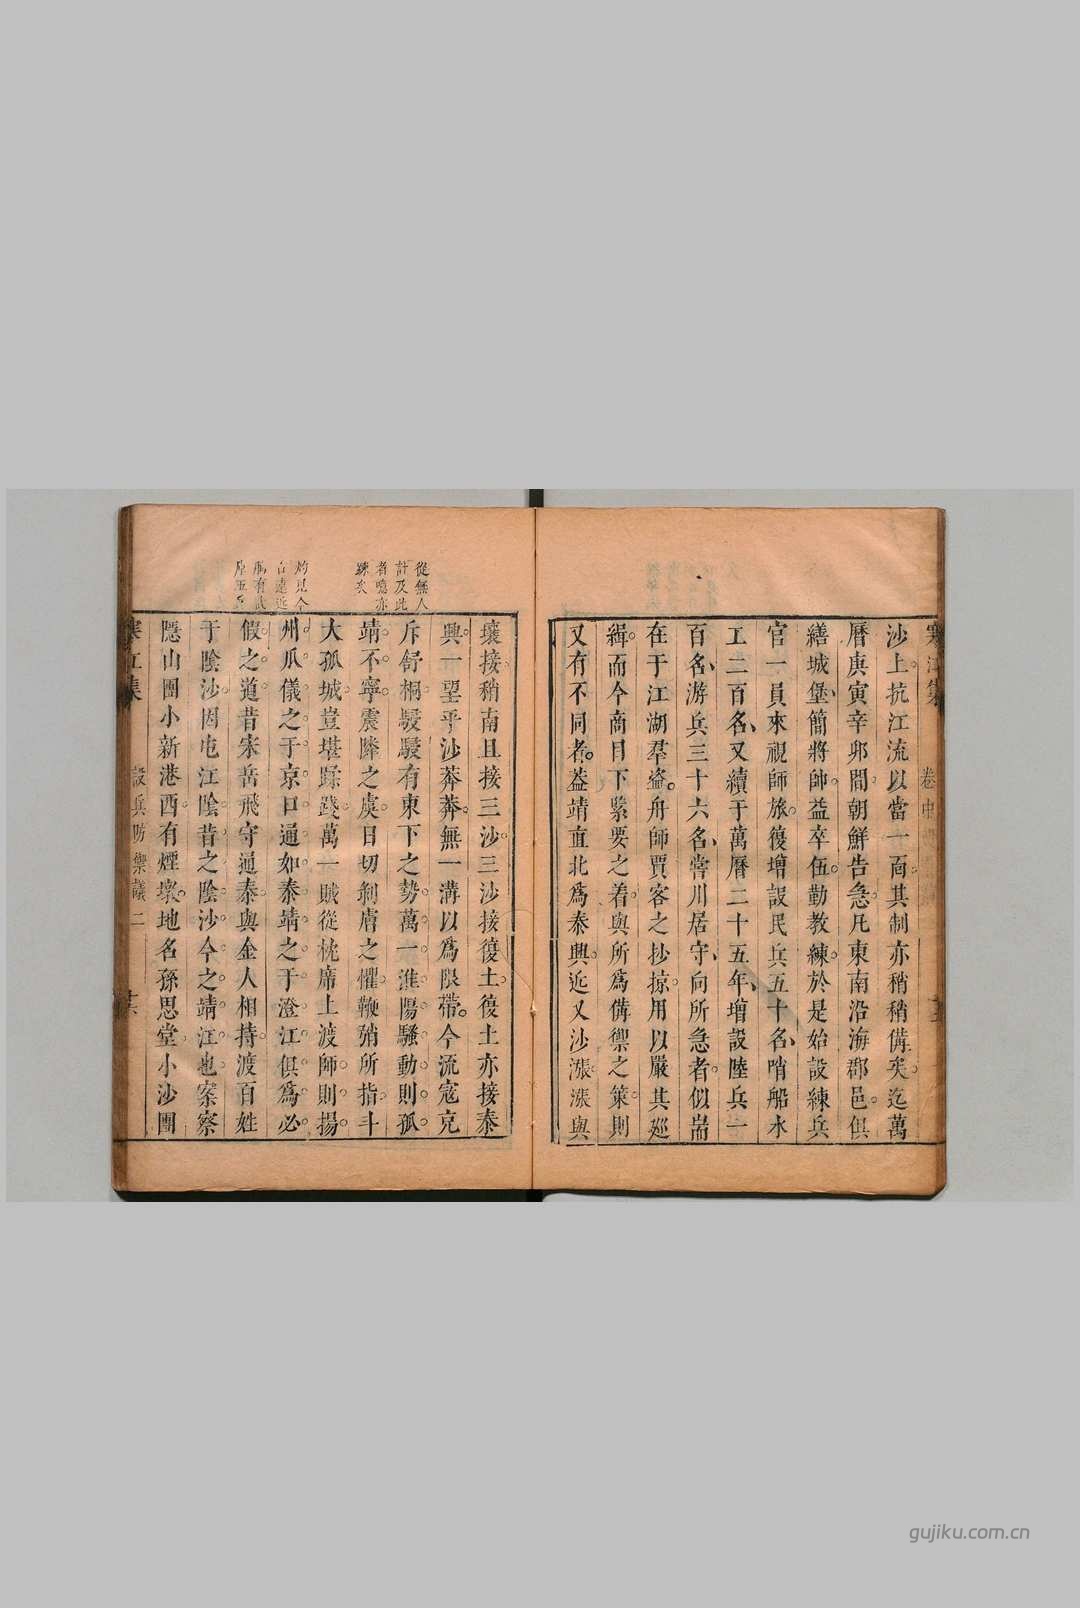 寒江集 卷中
沙上抗江流以當一面其制亦稍稍備矣迄萬
曆庚寅辛卯間朝鮮告急凡東南沿海郡邑俱
繕城堡簡將師益卒伍勤教練於是始設練兵
官一員來視師旅復增設民兵五十名哨船水
工二百名又續于萬曆二十五年增設陸兵一
百名游兵三十六名嘗川居守向所急者似耑
在于江湖羣盜舟師賈客之抄掠用以嚴其廵
緝而今商目下緊要之着與所爲備禦之策則
又有不同者葢靖直北爲泰興近又沙漲漲與
壤接稍南且接三沙三沙接復土復土亦接泰
興一望平沙莽莽無一溝以爲限帶今流寇克
斥舒桐駸駸有東下之勢萬一淮陽騷動則孤
靖不寧震隣之虞目切剝膚之懼鞭弰所指斗
大孤城豈堪蹂踐萬一賊從枕席上渡師則揚
州瓜儀之于京口通如泰靖之于澄江俱爲必
假之道昔宋岳飛守通泰與金人相持渡百姓
于陰沙因屯江陰昔之陰沙今之靖江也案察
隱山團小新港西有煙墩地名孫思堂小沙團
寒江集 設兵防禦議二
從無人
計及此
者噫亦
踈矣
灼見今
古遠近